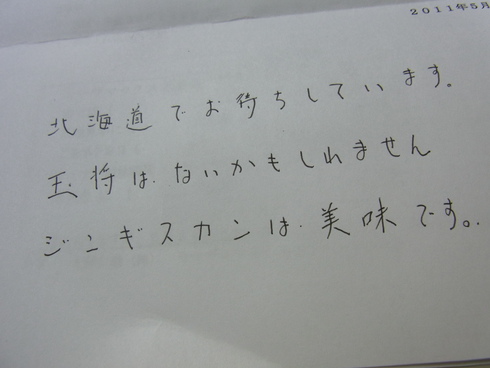 2011年5月
北海道でお待ちしています。
王将は、ないかもしれません
ジンギスカンは、美味です。